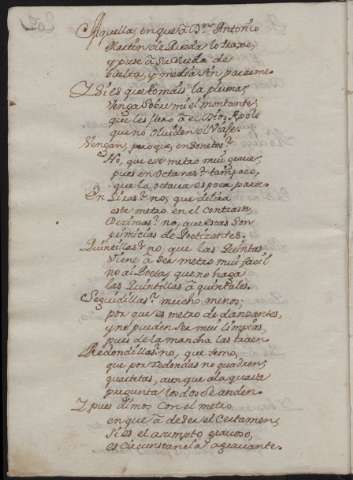 Aquella, en que â Dn. Antonio
Martin de Rueda lo traxe,
y puse â su Rueda de
buelta, y media sin pararme.
Y si es que tomais la pluma,
venga sobre mi el montante,
que les juro â el Dios Apolo
que no olviden el viaje.
Vengan, pero que, en Sonetos?
No, que ese metro mui grave,
pues en Octavas? tampoco,
que la octava es poca parte.
En Liras? no, que delira
este metro en el contraste,
Dezimas? no, que esas son
primicias de Poeticantes.
Quintillas? no, que las Quintas
viene â ser metro mui facil
no ai Poeta, que no haga
las Quintillas â quintales.
Seguidillas? mucho menos;
por que es metro de danzantes,
y no pueden ser mui limpias,
pues de la mancha las traen.
Redondillas? no, que temo,
que por redondas no quadren;
quartetas, aunque a la quarta
pregunta los dos se anden.
Y pues dimos con el metro
en que â de ser el Certamen,
si es el asumpto gracioso,
es circunstancia agravante.